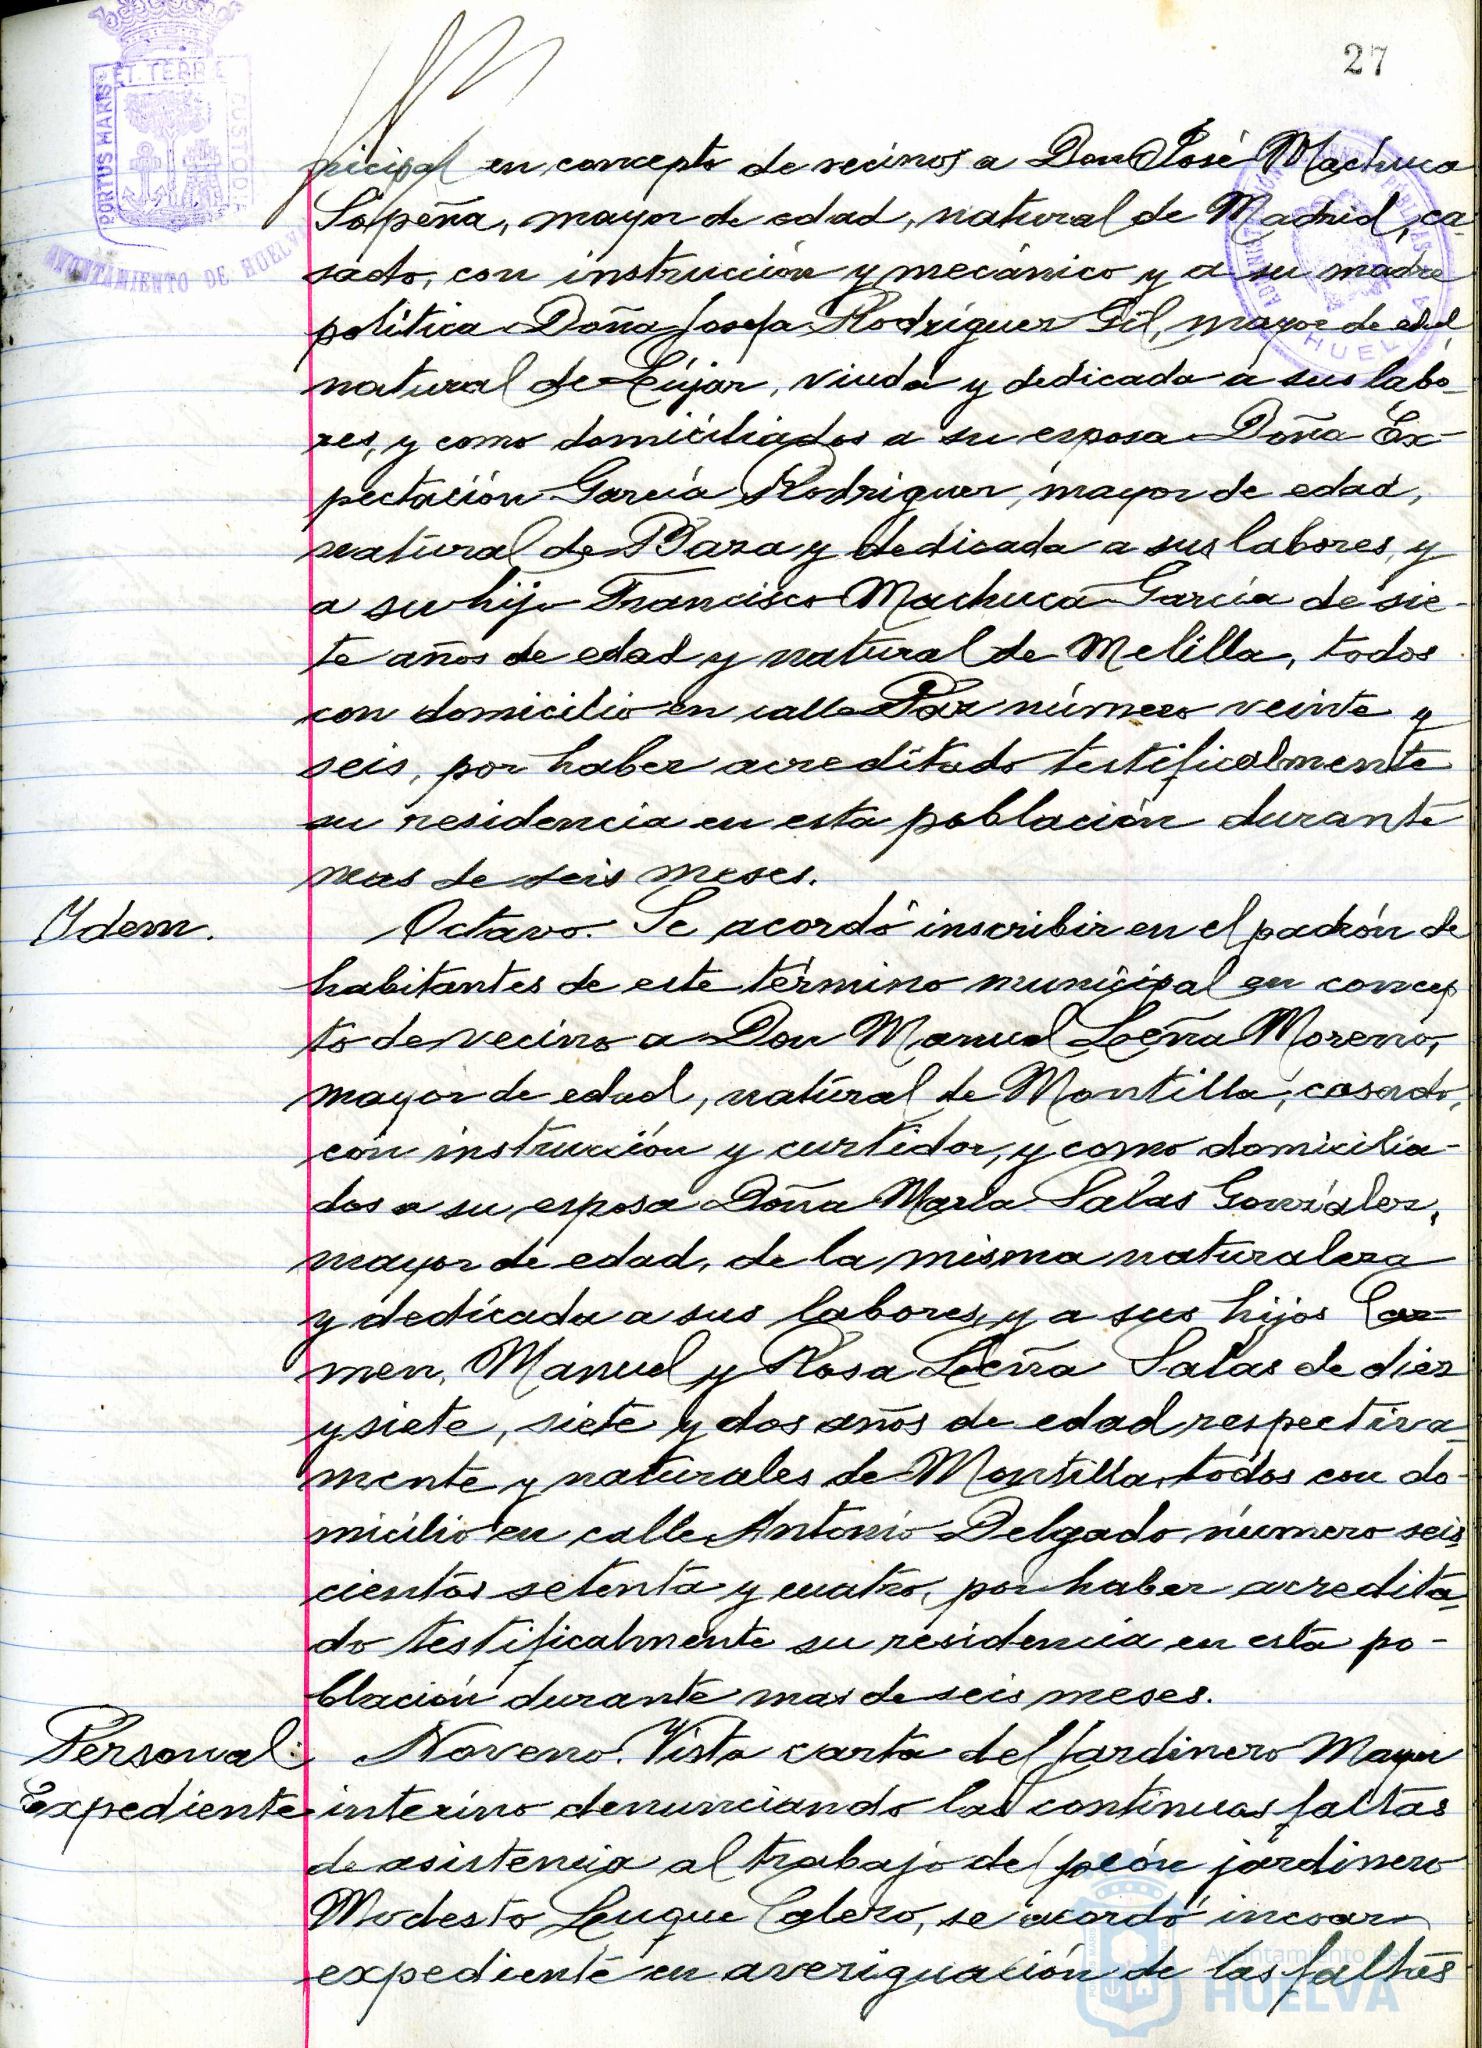 27
PORTUS MARIS ET TERRÆ CUSTODIA
AYUNTAMIENTO DE HUELVA
HUELVA
nicipal en concepto de vecinos a Don José Machuca
Sapeña, mayor de edad, natural de Madrid, ca-
sado, con instrucción y mecánico y a su madre
politica Doña Josefa Rodríguez Gil, mayor de edad,
natural de Lújar, viuda y dedicada a sus labo-
res, y como domiciliados a su esposa Doña Ex-
pectación García Rodriguez, mayor de edad,
natural de Baza y dedicada a sus labores, y
a su hijo Francisco Machuca García de sie-
te años de edad y natural de Melilla, todos
con domicilio en calle Paz número veinte y
seis, por haber acreditado testificalmente
su residencia en esta población durante
mas de seis meses.
Ydem.
Octavo. Se acordó inscribir en el padrón de
habitantes de este término municipal en concep
to de vecino a Don Manuel Leña Moreno,
mayor de edad, natural de Montilla, casado,
con instrucción y curtidor, y como domicilia-
dos a su esposa Doña María Salas González,
mayor de edad, de la misma naturaleza
y dedicada a sus labores, y a sus hijos Car-
men, Manuel y Rosa Leña Salas de diez
y siete, siete y dos años de edad respectiva-
mente y naturales de Montilla, todos con do-
micilio en calle Antonio Delgado número seis
cientos setenta y cuatro, por haber acredita-
do testificalmente su residencia en esta po-
blación durante mas de seis meses.
Personal:
Expediente
Noveno. Vista carta del Jardinero Mayor
interino denunciando las continuas faltas
de asistencia al trabajo del peón jardinero
Modesto Luque Calero, se acordó incoar
expediente en averiguación de las faltas
Ayuntamiento de
HUELVA